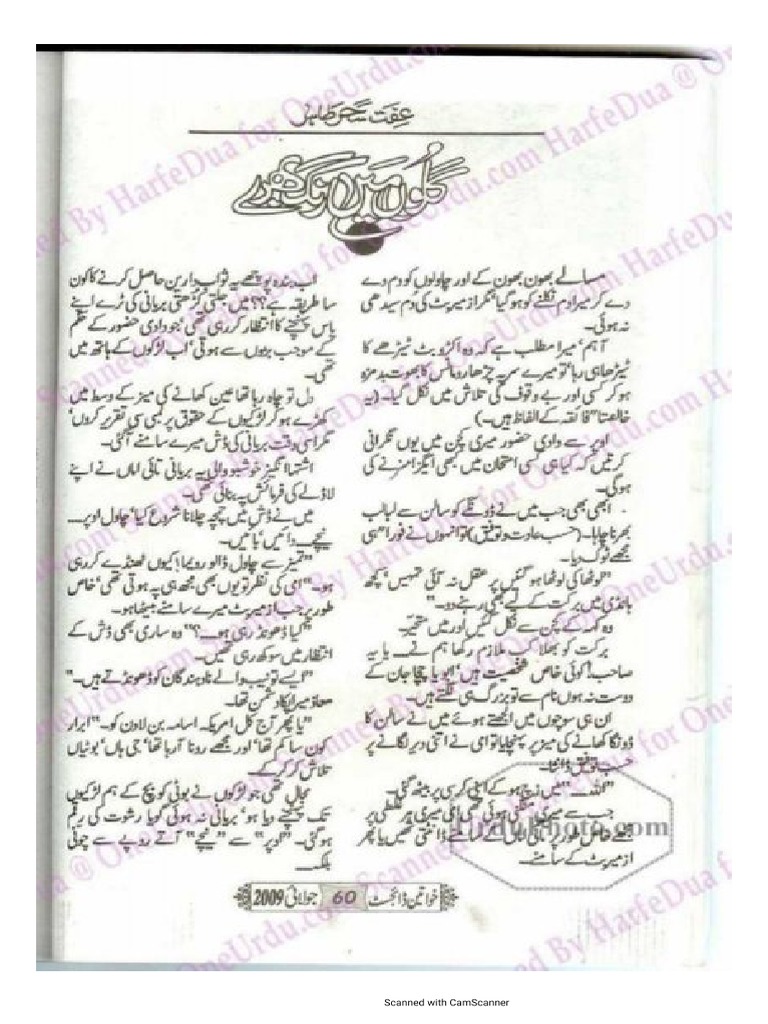 عِفّت سحر طاہر
گلوں میں رنگ بھرے
مسالے بھون بھون کے اور چاولوں کو دم دے
دے کر میرا دم نکلنے کو ہو گیا، مگر از میرٹ کی دُم سیدھی
نہ ہوئی۔
آہم، میرا مطلب ہے کہ وہ اکڑو بٹ ٹیڑھے کا
ٹیڑھا ہی رہا، تو میرے سر پہ چڑھا رومانس کا بھوت بدمزہ
ہو کر کسی اور بے وقوف کی تلاش میں نکل گیا۔ (یہ
خالصتا" فائقہ کے الفاظ ہیں۔)
اوپر سے دادی حضور میری کچن میں یوں نگرانی
کرتیں کہ کیا ہی کسی امتحان میں کبھی ایگزامنر نے کی
ہوگی۔
ابھی بھی جب میں نے ڈونگے کو سالن سے لبالب
بھرنا چاہا۔ (حسب عادت و توفیق) تو انہوں نے فورا" ہی
مجھے ٹوک دیا۔
"لوٹھا کی لوٹھا ہو گئیں پر عقل نہ آئی تمہیں، کچھ
ہانڈی میں برکت کے لیے بھی رہنے دو۔"
وہ کہہ کے کچن سے نکل گئیں اور میں متحیّر۔
برکت کو بھلا کب ملازم رکھا ہم نے۔ یا یہ
صاحب کوئی خاص شخصیت ہیں، ابو یا چچا جان کے
دوست نہ ہوں نام سے تو بزرگ ہی لگتے ہیں۔
ان ہی سوچوں میں الجھتے ہوئے میں نے سالن کا
ڈونگا کھانے کی میز پر پہنچایا تو امی نے اتنی دیر لگانے پر
حسب توفیق ڈانٹا۔
میں زچ ہو کے اپنی کرسی پر بیٹھ گئی۔
جب سے میری منگنی ہوئی تھی امی میری ہر غلطی پر
مجھے خاص طور پر تائی اماں کے سامنے ڈانٹتی تھیں یا پھر
از میرٹ کے سامنے۔
اب بندہ پوچھے یہ ثواب دارین حاصل کرنے کا کون
سا طریقہ ہے؟؟ میں جلتی کڑھتی بریانی کی ٹرے اپنے
پاس پہنچنے کا انتظار کر رہی تھی، جو دادی حضور کے حکم
کے موجب بڑوں سے ہوتی، اب لڑکوں کے ہاتھ میں
تھی۔
دل تو چاہ رہا تھا عین کھانے کی میز کے وسط میں
کھڑے ہو کر لڑکیوں کے حقوق پر لمبی سی تقریر کروں،
مگر اسی وقت بریانی کی ڈش میرے سامنے آگئی۔
اشتہا انگیز خوشبو والی یہ بریانی تائی اماں نے اپنے
لاڈلے کی فرمائش پہ بنائی تھی۔
میں نے ڈش میں چمچہ چلانا شروع کیا، چاول اوپر۔۔
نیچے۔ دائیں، بائیں۔
"تمیز سے چاول ڈالو رویما! کیوں ٹھنڈے کر رہی
ہو۔" امی کی نظر تو یوں بھی مجھ ہی پہ ہوتی تھی، خاص
طور پر جب از میرٹ میرے سامنے بیٹھا ہو۔
"کیا ڈھونڈ رہی ہو۔؟" وہ ساری بھی ڈش کے
انتظار میں سوکھ رہی تھیں۔
"ایسے تو نیب والے نادہندگان کو ڈھونڈتے ہیں۔"
معاذ میرا پکا دشمن تھا۔
"یا پھر آج کل امریکہ اسامہ بن لادن کو۔" ابرار
کون سا کم تھا، اور مجھے رونا آ رہا تھا، جی ہاں، بوٹیاں
تلاش کر کر کے۔
مجال تھی جو لڑکوں نے بوٹی کو بچ کے ہم لڑکیوں
تک پہنچنے دیا ہو، بریانی نہ ہوئی گویا رشوت کی رقم
ہو گئی۔ "اوپر" سے "نیچے" آتے روپے سے چونی
بلکہ۔۔
خواتین ڈائجسٹ 60 جولائی 2009
urdu photo.com
Scanned By HarfeDua for OneUrdu.com
Scanned with CamScanner